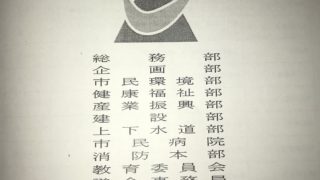 総務部
企画部
市民環境部
健康福祉部
産業振興部
建設部
上下水道部
市民病院
消防本部
教育委員会